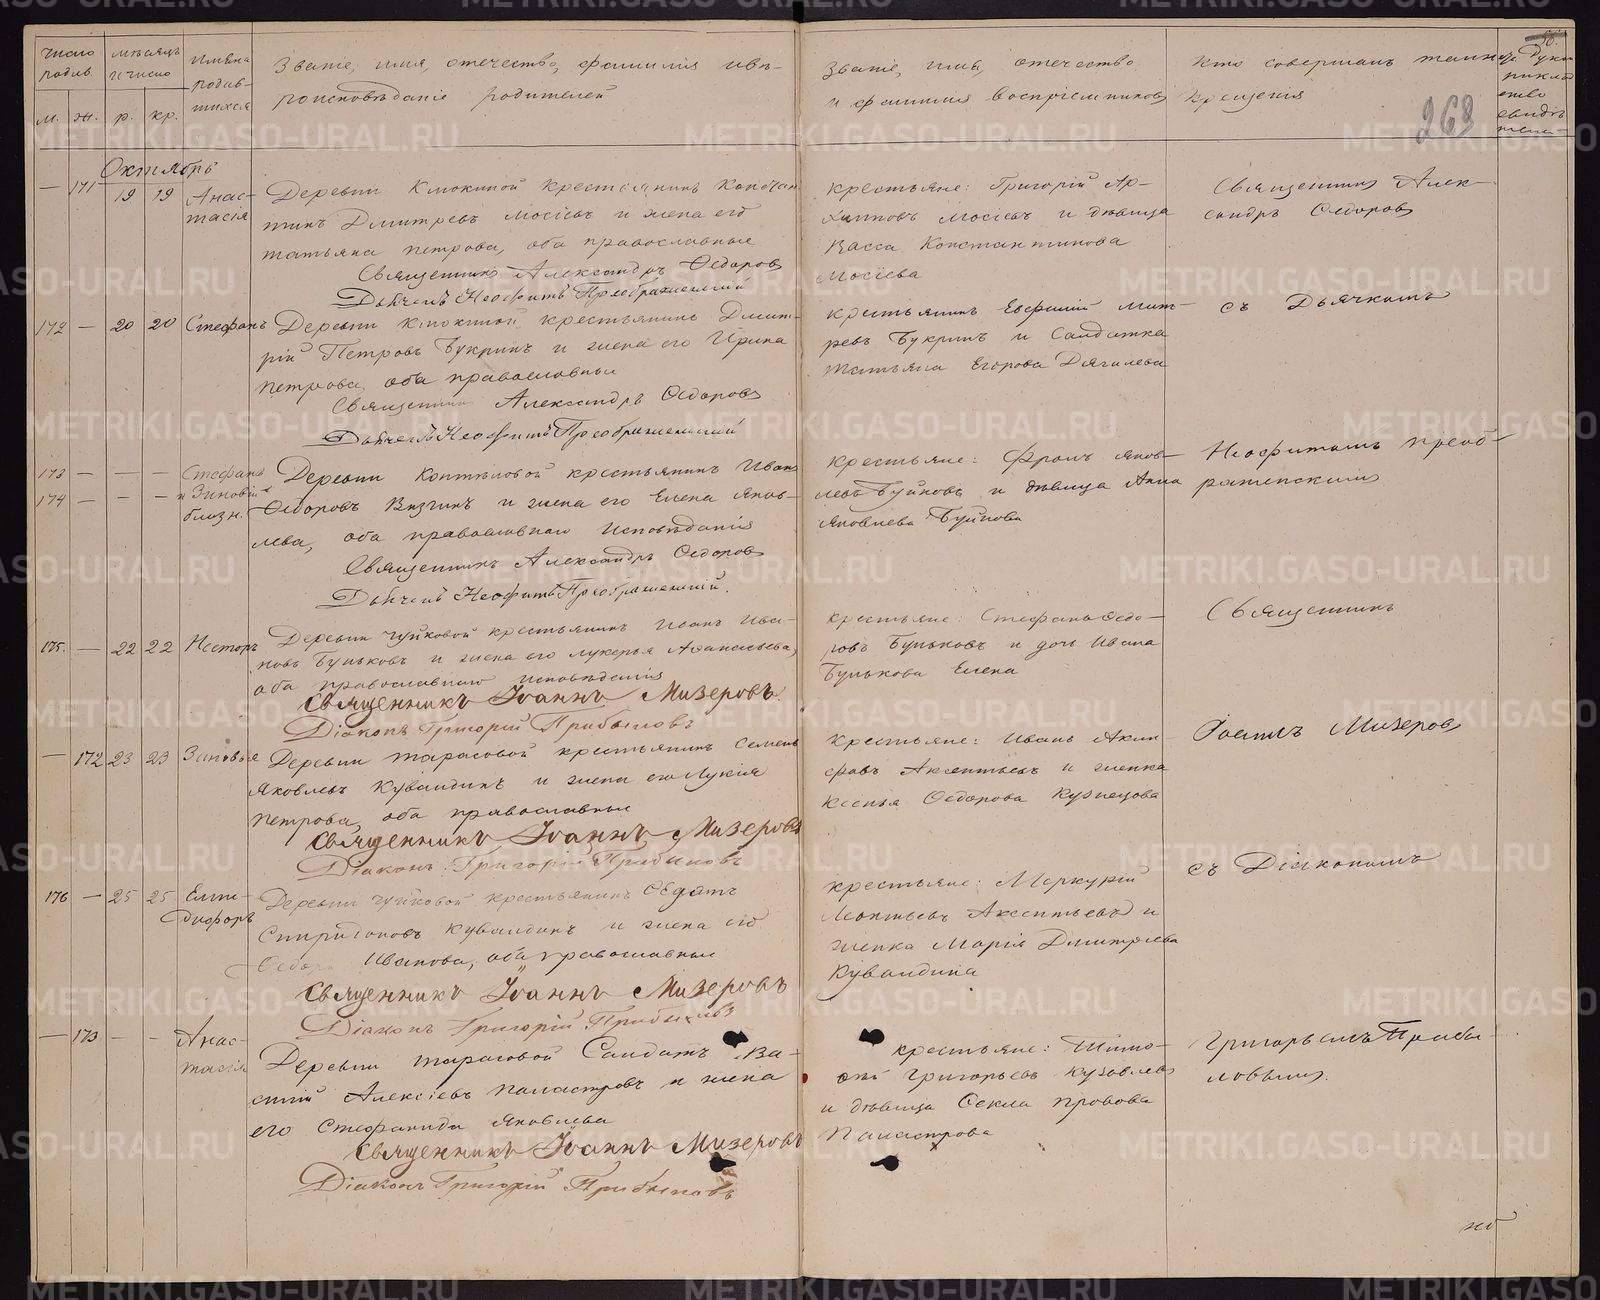 Число родив.
мѣсяцъ и число
имена родив-
шихся
м. ж. р. кр.
Званіе, имя, отечество, фамилія и вѣ-
роисповѣданіе родителей
Званіе, имя, отечество
и фамилія воспріемниковъ
Кто совершалъ таин
крещенія
268
Октябрь
— 171 19 19 Анас-
тасія
Деревни Клюкиной крестьянинъ Констан
тинъ Дмитревъ Мосіевъ и жена его
татьяна петрова, оба православные
Священникъ Александръ Ѳедоровъ
Дьячекъ Неофитъ Преображенскій
крестьяне: Григорій Ар-
хиповъ Мосіевъ и дѣвица
Васса Константинова
Мосіева
Священникъ Алек-
сандръ Ѳедоровъ
172 — 20 20 Стефанъ
Деревни Клюкиной крестьянинъ Дмит-
рій Петровъ Букринъ и жена его Ирина
петрова, оба православные
Священникъ Александръ Ѳедоровъ
Дьячекъ Неофитъ Преображенскій
крестьянинъ Евфимій Мит-
ревъ Букринъ и Салдатка
татьяна Егорова Дягилева
съ Дьячкомъ
173 — — — Стефанъ
174 — — — и Зиновій
близн.
Деревни Коптѣловой крестьянинъ Иванъ
Ѳедоровъ Вязгинъ и жена его Елена Яков-
лева, оба православнаго исповѣданія
Священникъ Александръ Ѳедоровъ
Дьячекъ Неофитъ Преображенскій.
крестьяне: Фролъ Яков-
левъ Буйновъ и дѣвица Анна
Яковлева Буйнова
Неофитомъ преоб-
раженскимъ
175. — 22 22 Несторъ
Деревни Чуйковой крестьянинъ Иванъ Ива-
новъ Буньковъ и жена его лукерья Аѳанасьева,
оба православнаго исповѣданія
Священникъ Іоаннъ Мизеровъ.
Діаконъ Григорій Прибыловъ
крестьяне: Стефанъ Ѳедо-
ровъ Буньковъ и дочь Ивана
Бунькова Елена
Священникъ
— 172 23 23 Зиновья
Деревни тарасовой крестьянинъ Семенъ
Яковлевъ Кувалдинъ и жена его Лукія
Петрова, оба православные
Священникъ Іоаннъ Мизеровъ
Діаконъ Григорій Прибыловъ
крестьяне: Иванъ Акин
фовъ Аксентьевъ и женка
Ксенья Ѳедорова Кузнецова
Іоаннъ Мизеровъ
176 — 25 25 Елпи-
дифоръ
Деревни Чуйковой крестьянинъ Ѳедотъ
Спиридоновъ Кувалдинъ и жена его
Ѳедора Иванова, оба православные
Священникъ Іоаннъ Мизеровъ
Діаконъ Григорій Прибыловъ
крестьяне: Меркурій
Леонтьевъ Аксентьевъ и
женка Марія Дмитріева
Кувалдина
съ Діакономъ
— 173 — — Анас-
тасія
Деревни тарасовой Салдатъ Ва-
силій Алексіевъ Паластровъ и жена
его Стефанида Яковлева
Священникъ Іоаннъ Мизеровъ
Діаконъ Григорій Прибыловъ
крестьяне: Тимо-
фей Григорьевъ Кузовлевъ
и дѣвица Ѳекла прокова
Паластрова
Григорьемъ Прибы-
ловымъ.
METRIKI.GASO-URAL.RU